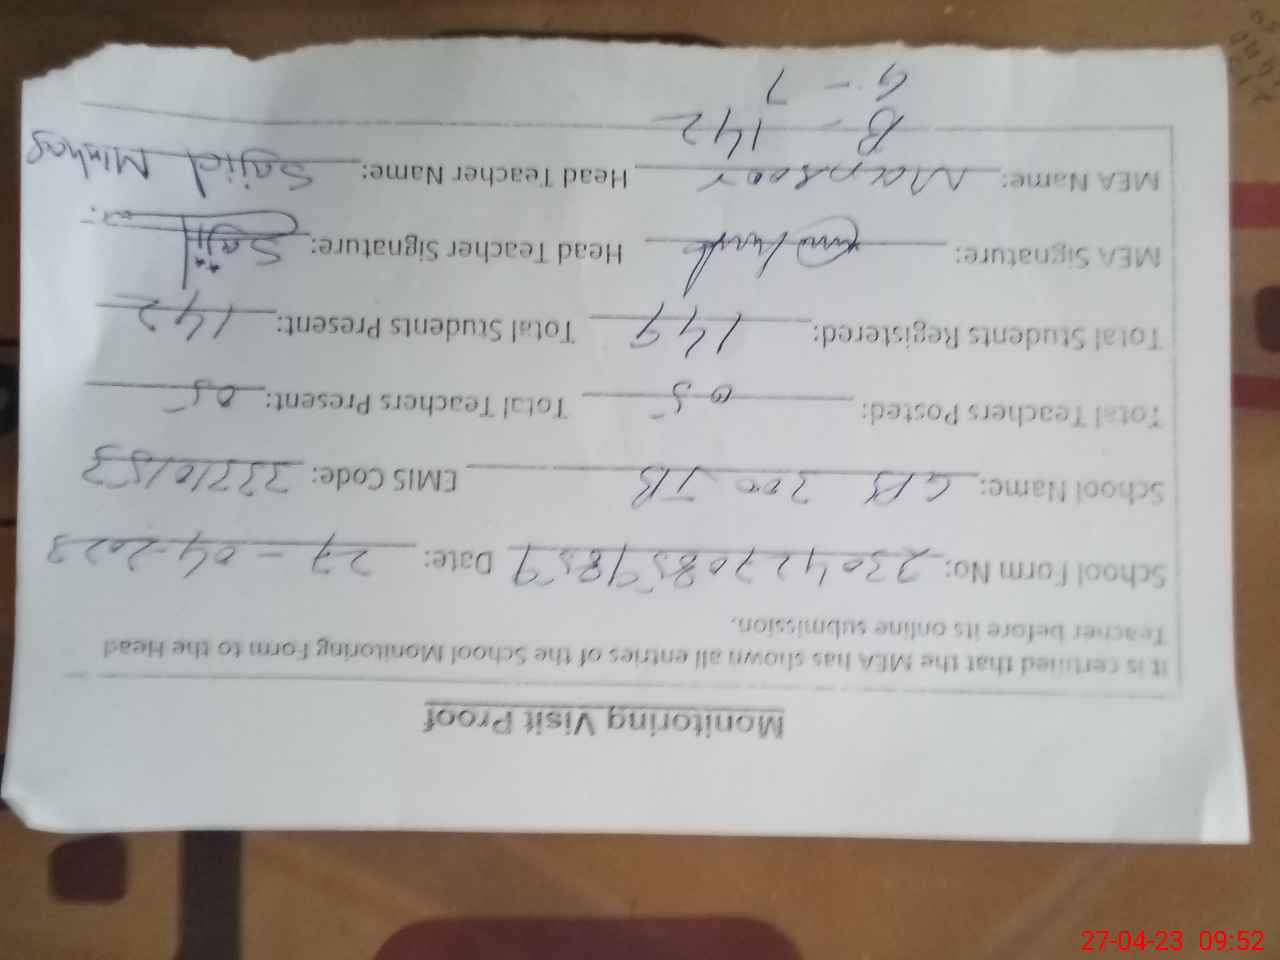 Monitoring Visit Proof
It is certified that the MEA has shown all entries of the School Monitoring Form to the Head
Teacher before its online submission.
School Form No: 2304270859859 Date: 27-04-2023
School Name: GPS 200 JB EMIS Code: 33210153
Total Teachers Posted: 05 Total Teachers Present: 05
Total Students Registered: 149 Total Students Present: 142
MEA Signature: Head Teacher Signature: Sajid
MEA Name: Mansoor Head Teacher Name: Sajid Minhas
B - 142
G - 7
27-04-23 09:52